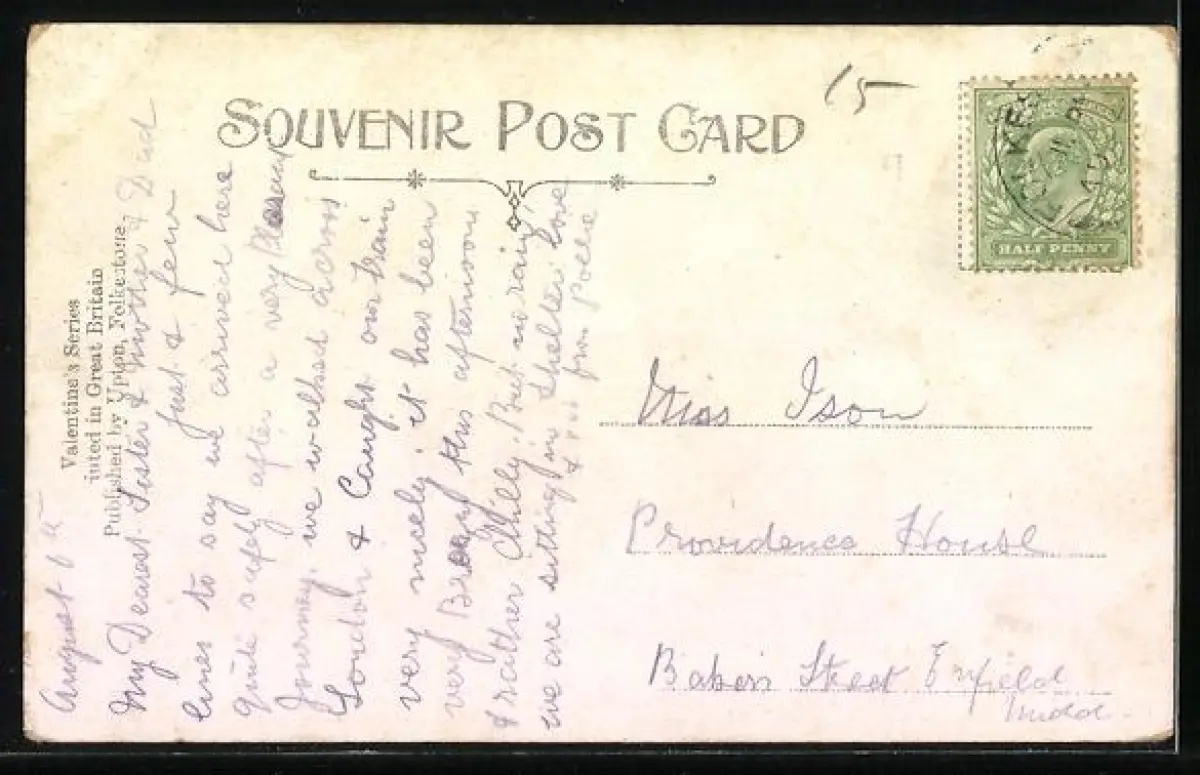 SOUVENIR POST CARD
15
HALF PENNY
Valentine's Series
inted in Great Britain
Published by Upton, Folkestone
August 6th
My Dearest Sister & Mother & Dad
Just a few
lines to say we arrived here
quite safely after a very Pleasant
Journey, we walked across
London & Caught our train
very nicely it has been
very this afternoon
& rather Chilly. But no rain,
we are sitting in shelter
& from
Miss Ison
Providence House
Bakers Street Enfield
Middx.